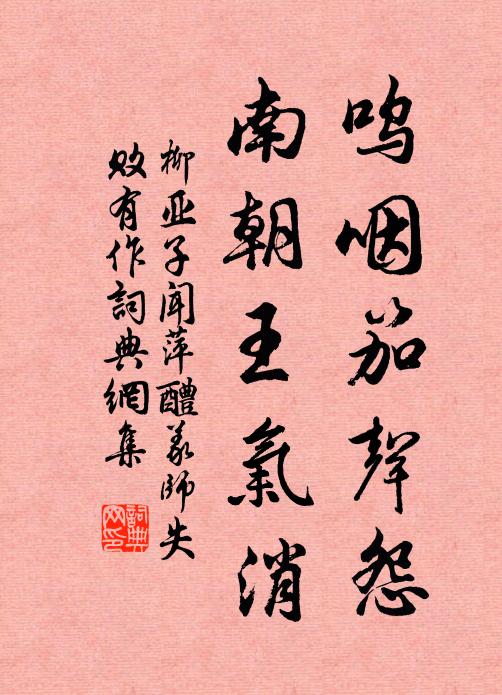 呜咽笳聲怨
南朝王氣消
柳亚子闻萍醴义师失
败有作詞典網集
詞典网印